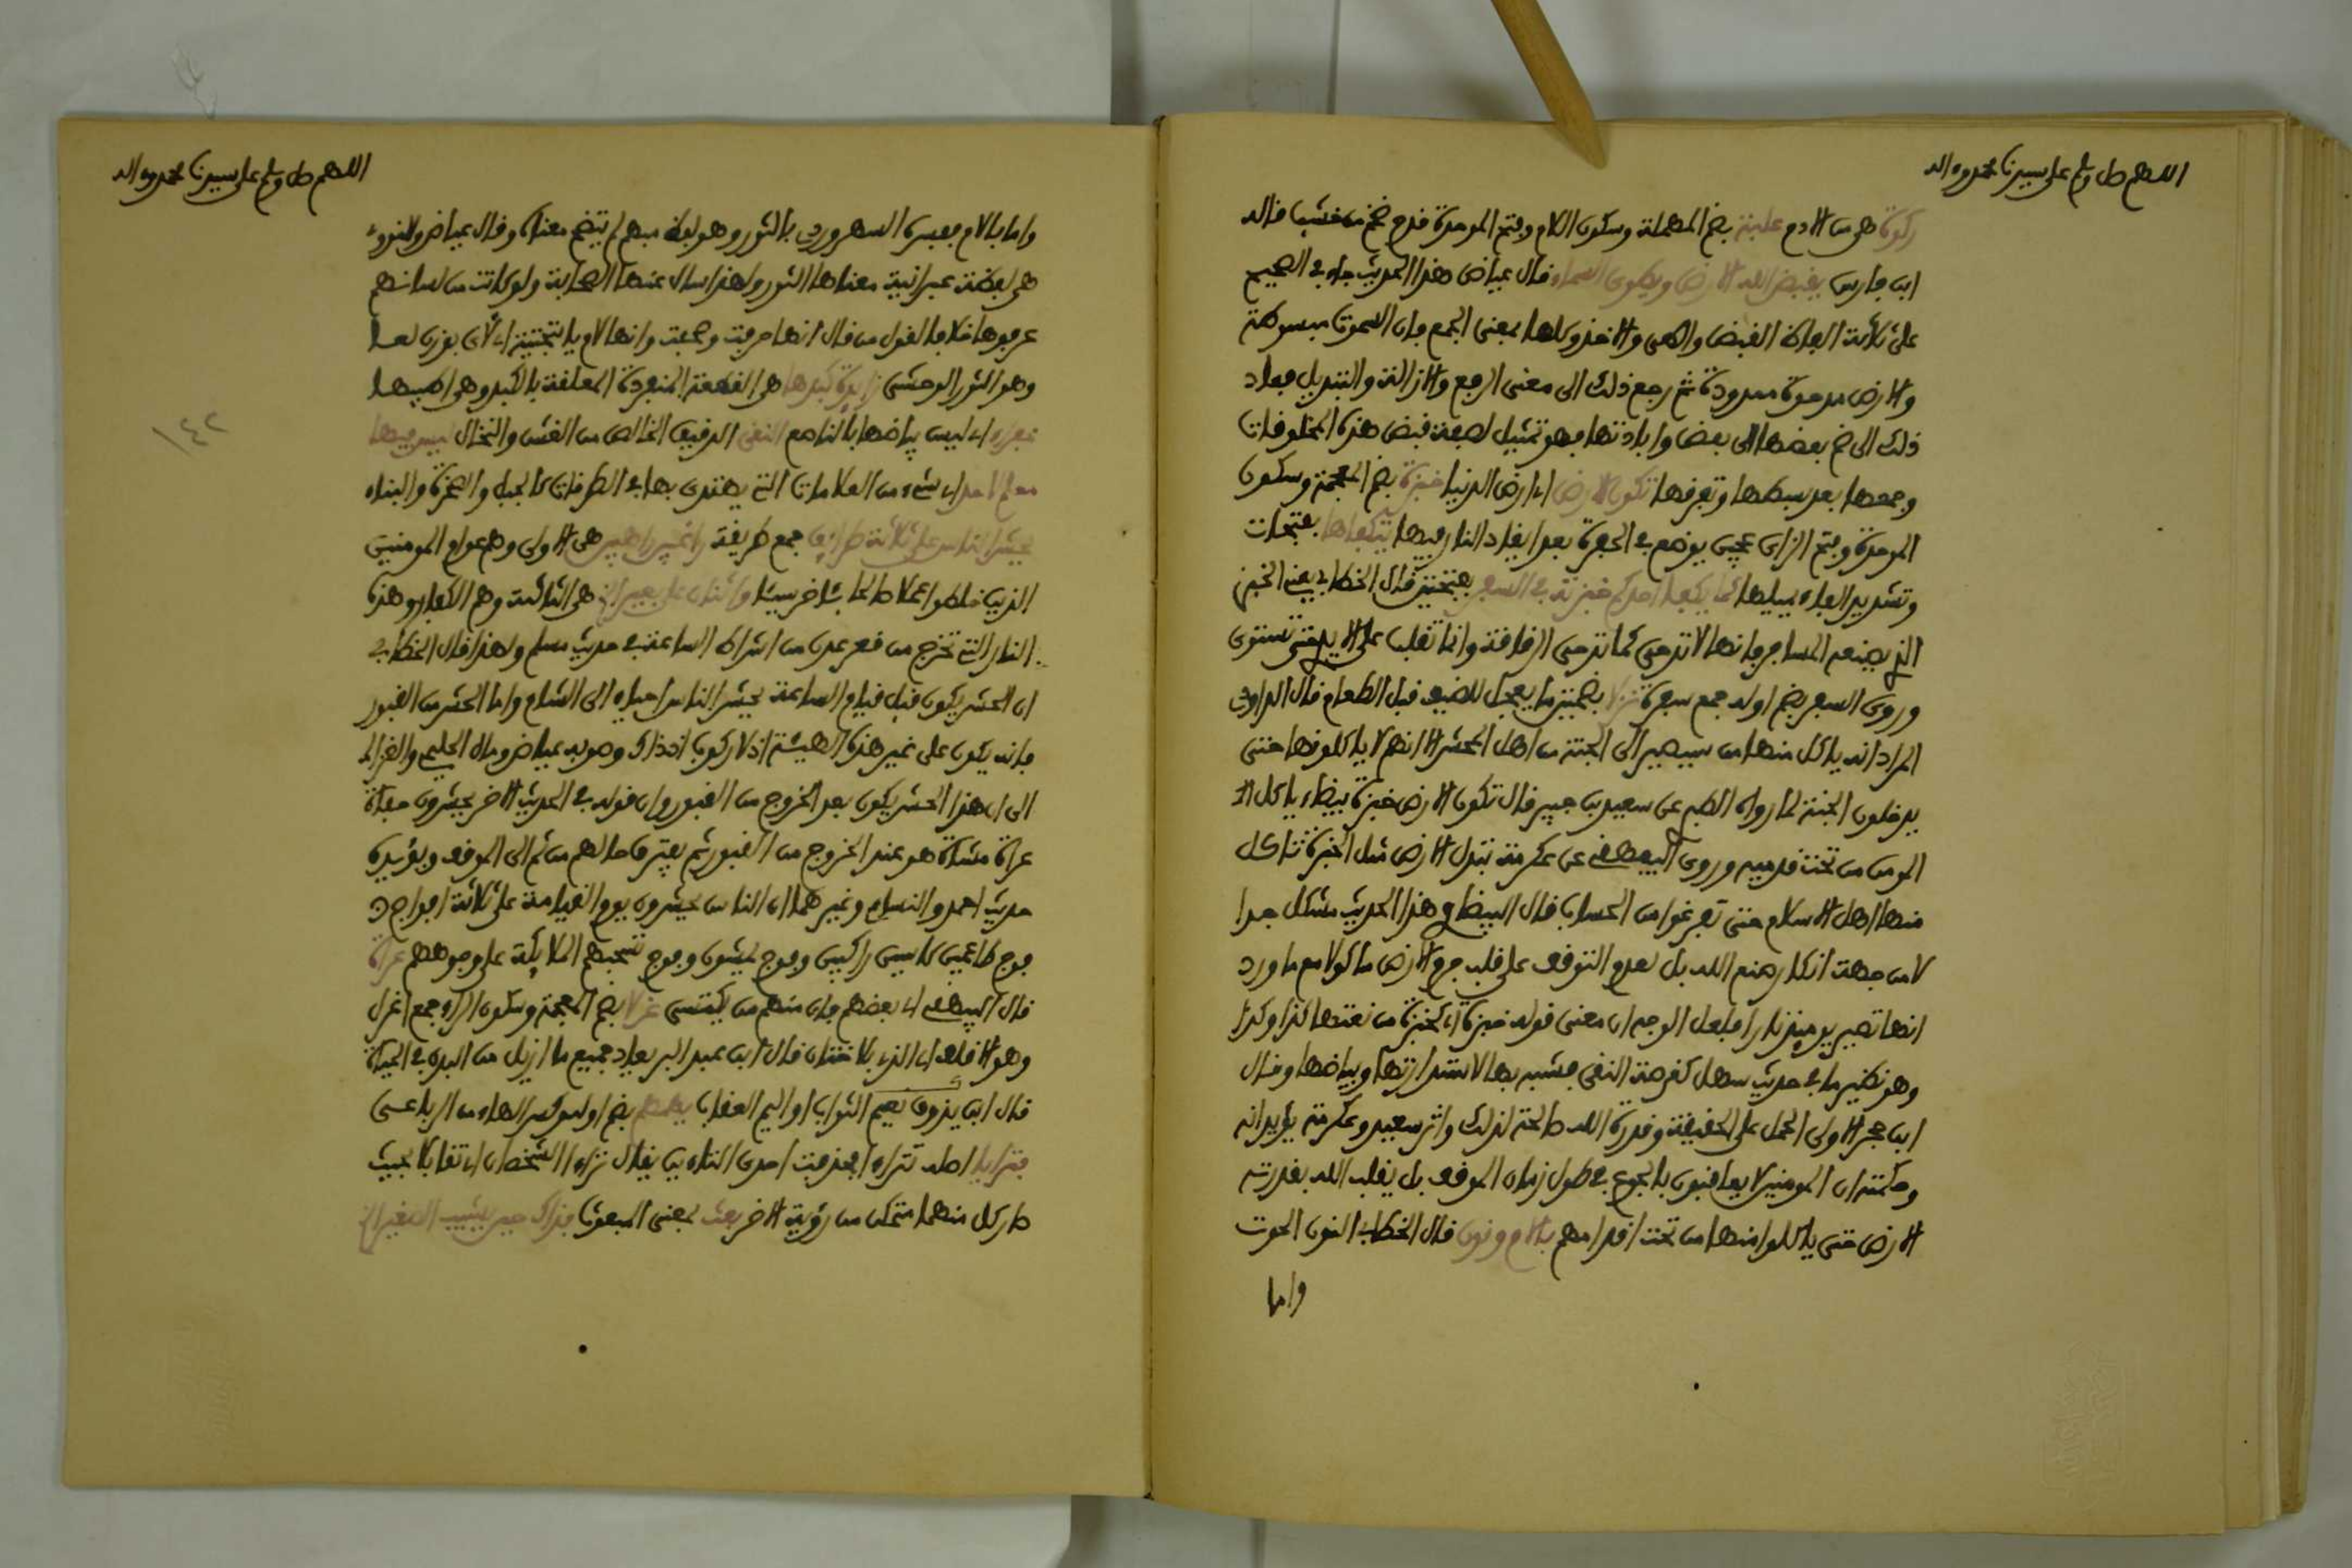 اللهم صل وسلم على سيدنا محمد وءاله
ركوة هي من الادم علبة بضم المهملة وسكون اللام وفتح الموحدة قدح ضخم من خشب قاله
ابن فارس يقبض الله الارض ويطوي السماء قال عياض هذا الحديث جاء في الصحيح
على ثلاثة الفاظ القبض والطي والاخذ وكلها بمعنى الجمع فإن السموات مبسوطة
والارض مدحوة ممدودة ثم رجع ذلك الى معنى الرفع والازالة والتبديل فعاد
ذلك الى ضم بعضها الى بعض وابادتها فهو تمثيل لصفة قبض هذه المخلوقات
وجمعها بعد بسطها وتفرقها تكون الارض اي ارض الدنيا خبزة بضم المعجمة وسكون
الموحدة وفتح الزاي عجين يوضع في الحفرة بعد ايقاد النار فيها يتكفاها بفتحات
وتشديد الفاء يميلها كما يكفأ احدكم خبزته في السفر بفتحتين قال الخطابي يعني الخبز
الذي يصنعه المسافر فانها لا تدحى كما تدحى الرقاقة وانما تقلب على الايدي حتى تستوي
وروي السفر بضم اوله جمع سفرة نزلا بضمتين ما يعجل للضيف قبل الطعام قال الداودي
المراد انه ياكل منها من سيصير الى الجنة من اهل المحشر لا انهم لا ياكلونها حتى
يدخلون الجنة لما رواه الطبري عن سعيد بن جبير قال تكون الارض خبزة بيضاء ياكل
المومن من تحت قدميه وروى البيهقي عن عكرمة تبدل الارض مثل الخبزة ياكل
منها اهل الاسلام حتى يفرغوا من الحساب قال البيضاوي هذا الحديث مشكل جدا
لا من جهة انكار صنع الله بل لعدم التوقف على قلب جرم الارض ماكولا مع ما ورد
انها تصير يومئذ نارا فلعل الوجه ان معنى قوله خبزة اي كخبزة من نعتها كذا وكذا
وهو نظير ما في حديث سهل كقرصة النقي فشبه بها لاستدارتها وبياضها وقال
ابن حجر الاولى الحمل على الحقيقة وقدرة الله صالحة لذلك واثر سعيد وعكرمة يؤيدانه
وحكمته ان المومنين لا يعاقبون بالجوع في طول زمان الموقف بل يقلب الله بقدرته
الارض حتى ياكلوا منها من تحت اقدامهم بالام ونون قال الخطابي النون الحوت
واما
اللهم صل وسلم على سيدنا محمد وءاله
واما بالام فيفسره السهروردي بالثور وهو لفظ مبهم لم يتضح معناه وقال عياض والنووي
هي لفظة عبرانية معناها الثور ولهذا سال عنها الصحابة ولو كانت من لسانهم
عرفوها خلافا لقول من قال انها حرفت وصحفت وانها لام ياء تحتية اي لأي بوزن لعا
وهو الثور الوحشي زايدة كبدها هي القطعة المنفردة المعلقة بالكبد وهي اطيبها
عفراء اي ليس بياضها بالناصع النقي الدقيق الخالص من الغش والنخال ليس فيها
معلم لاحد اي شيء من العلامات التي يهتدى بها في الطرقات كالجبل والصخرة والبناء
يحشر الناس على ثلاثة طرائق جمع طريقة راغبين راهبين هي الاولى وهم عوام المومنين
الذين خلطوا عملا صالحا بئاخر سيئا واثنان على بعير الخ هي الثالثة وهم الكفار وهذه
النار التي تخرج من قعر عدن من اشراط الساعة في حديث مسلم ولهذا قال الخطابي
ان الحشر يكون قبل قيام الساعة يحشر الناس احياء الى الشام واما الحشر من القبور
فانه يكون على غير هذه الهيئة اذ لا ركوب اذ ذاك وصوبه عياض ومال الحليمي والغزالي
الى ان هذا الحشر يكون بعد الخروج من القبور وان قوله في الحديث الاخر يحشرون حفاة
عراة مشاة هو عند الخروج من القبور ثم يفترق حالهم من ثم الى الموقف ويؤيده
حديث احمد والنسايي وغيرهما ان الناس يحشرون يوم القيامة على ثلاثة افواج
فوج طاعمين كاسين راكبين وفوج يمشون وفوج تسحبهم الملايكة على وجوههم عراة
قال البيهقي اي بعضهم فان منهم من يكتسي غرلا بضم المعجمة وسكون الراء جمع اغرل
وهو الاقلف اي الذي بلا ختان قال ابن عبد البر يعاد جميع ما ازيل من البدن في الحياة
قال ابن يذوق نعيم الثواب او اليم العقاب يهمهم بضم اوله وكسر الهاء من الرباعي
فترايا اصله تتراءا فحذفت احدى التاءين يقال تراءا الشخصان اي تقابلا بحيث
صار كل منهما متمكن من رؤية الاخر بعث بمعنى المبعوث فذاك حين يشيب الصغير الخ
١٤٢